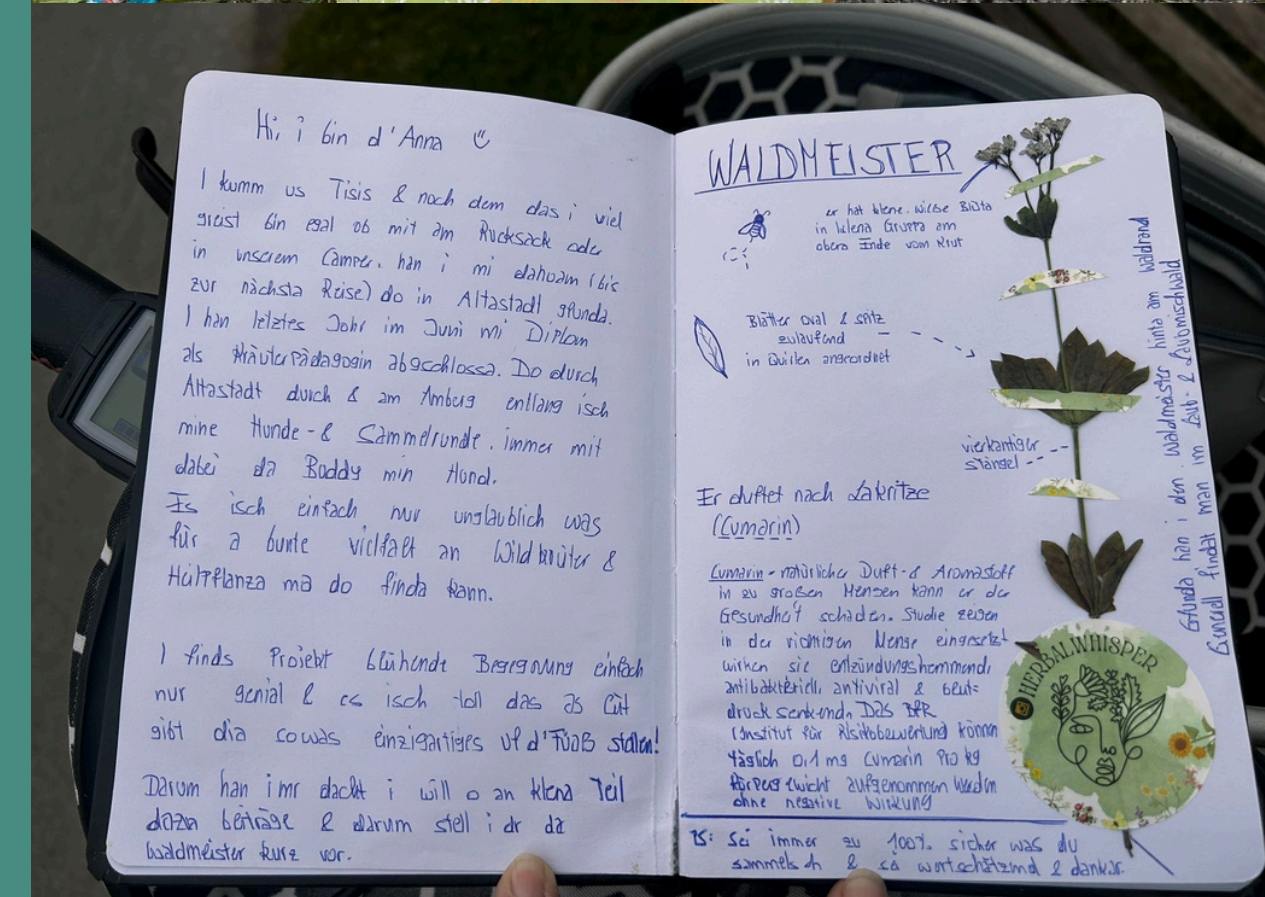 Hi, i bin d'Anna
I kumm us Tisis & noch dem das i viel
greist bin egal ob mit am Rucksack oder
in unserem Camper. han i mi dahoam (bis
zur nächsta Reise) do in Altastadt gfunda.
I han letztes Johr im Juni mi Diplom
als Kräuterpädagogin abgschlossa. Do durch
Altastadt durch & am Amberg entlang isch
mine Hunde- & Sammelrunde. immer mit
dabei da Buddy min Hund.
Es isch einfach nur unglaublich was
für a bunte vielfalt an Wildkräuter &
Heilpflanza ma do finda kann.
I finds Projekt blühende Begegnung einfach
nur genial & es isch toll das as Lüt
gibt dia sowas einzigartiges uf d'Füaß stellen!
Darum han i mr dacht i will o an klena Teil
dazu beiträge & darum stell i dr da
Waldmeister kurz vor.
WALDMEISTER
er hat klene. wiße Blüta
in klena Gruppa am
obera Ende vom Krut
Blätter oval & spitz
zulaufend
in Quirlen angeordnet
vierkantiger
stängel
Er duftet nach Lakritze
(Cumarin)
Cumarin - natürlicher Duft- & Aromastoff
in zu großen Mengen kann er der
Gesundheit schaden. Studie zeigen
in der richtigen Menge eingesetzt
wirken sie entzündungshemmend,
antibakteriell, antiviral & blut=
druck senkend. Das BFR
(Institut für Risikobewertung können
täglich 0,1 mg Cumarin Pro kg
Körpergewicht aufgenommen werden
ohne negative Wirkung
PS: Sei immer zu 100% sicher was du
sammelsch & sä wertschätzend & dankbar.
Gfunda han i den Waldmeister hinta am Waldrand
Generell findat man im Laub- & Laubmischwald
HERBALWHISPER